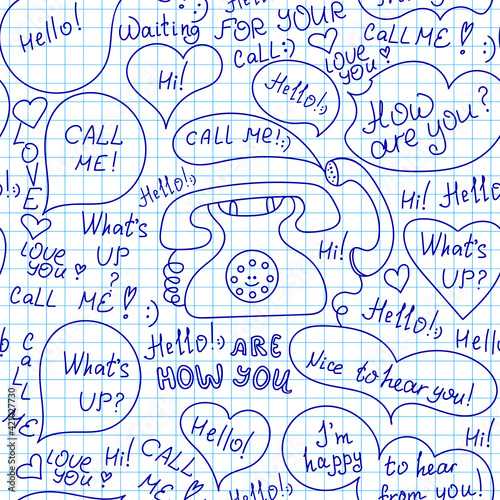 Hello!
Waiting
FOR YOUR
CALL:)
LOVE
YOU!
CALL ME!
:)
Hi!
Hello!:)
How
are you?
LOVE
CALL
ME!
CALL ME!:)
Hello!:)
Hi!
Hello
What's
UP
?
LOVE
YOU!
CALL ME! :)
Hi!
What's
UP?
Hello!:)
Hello
CALL ME
What's
UP?
Hello!:)
ARE
HOW YOU
Nice to hear you!
Hello!
I'm
happy
to hear
from you!
LOVE
YOU!
Hi!
CALL
ME!
:)
Hello!:)